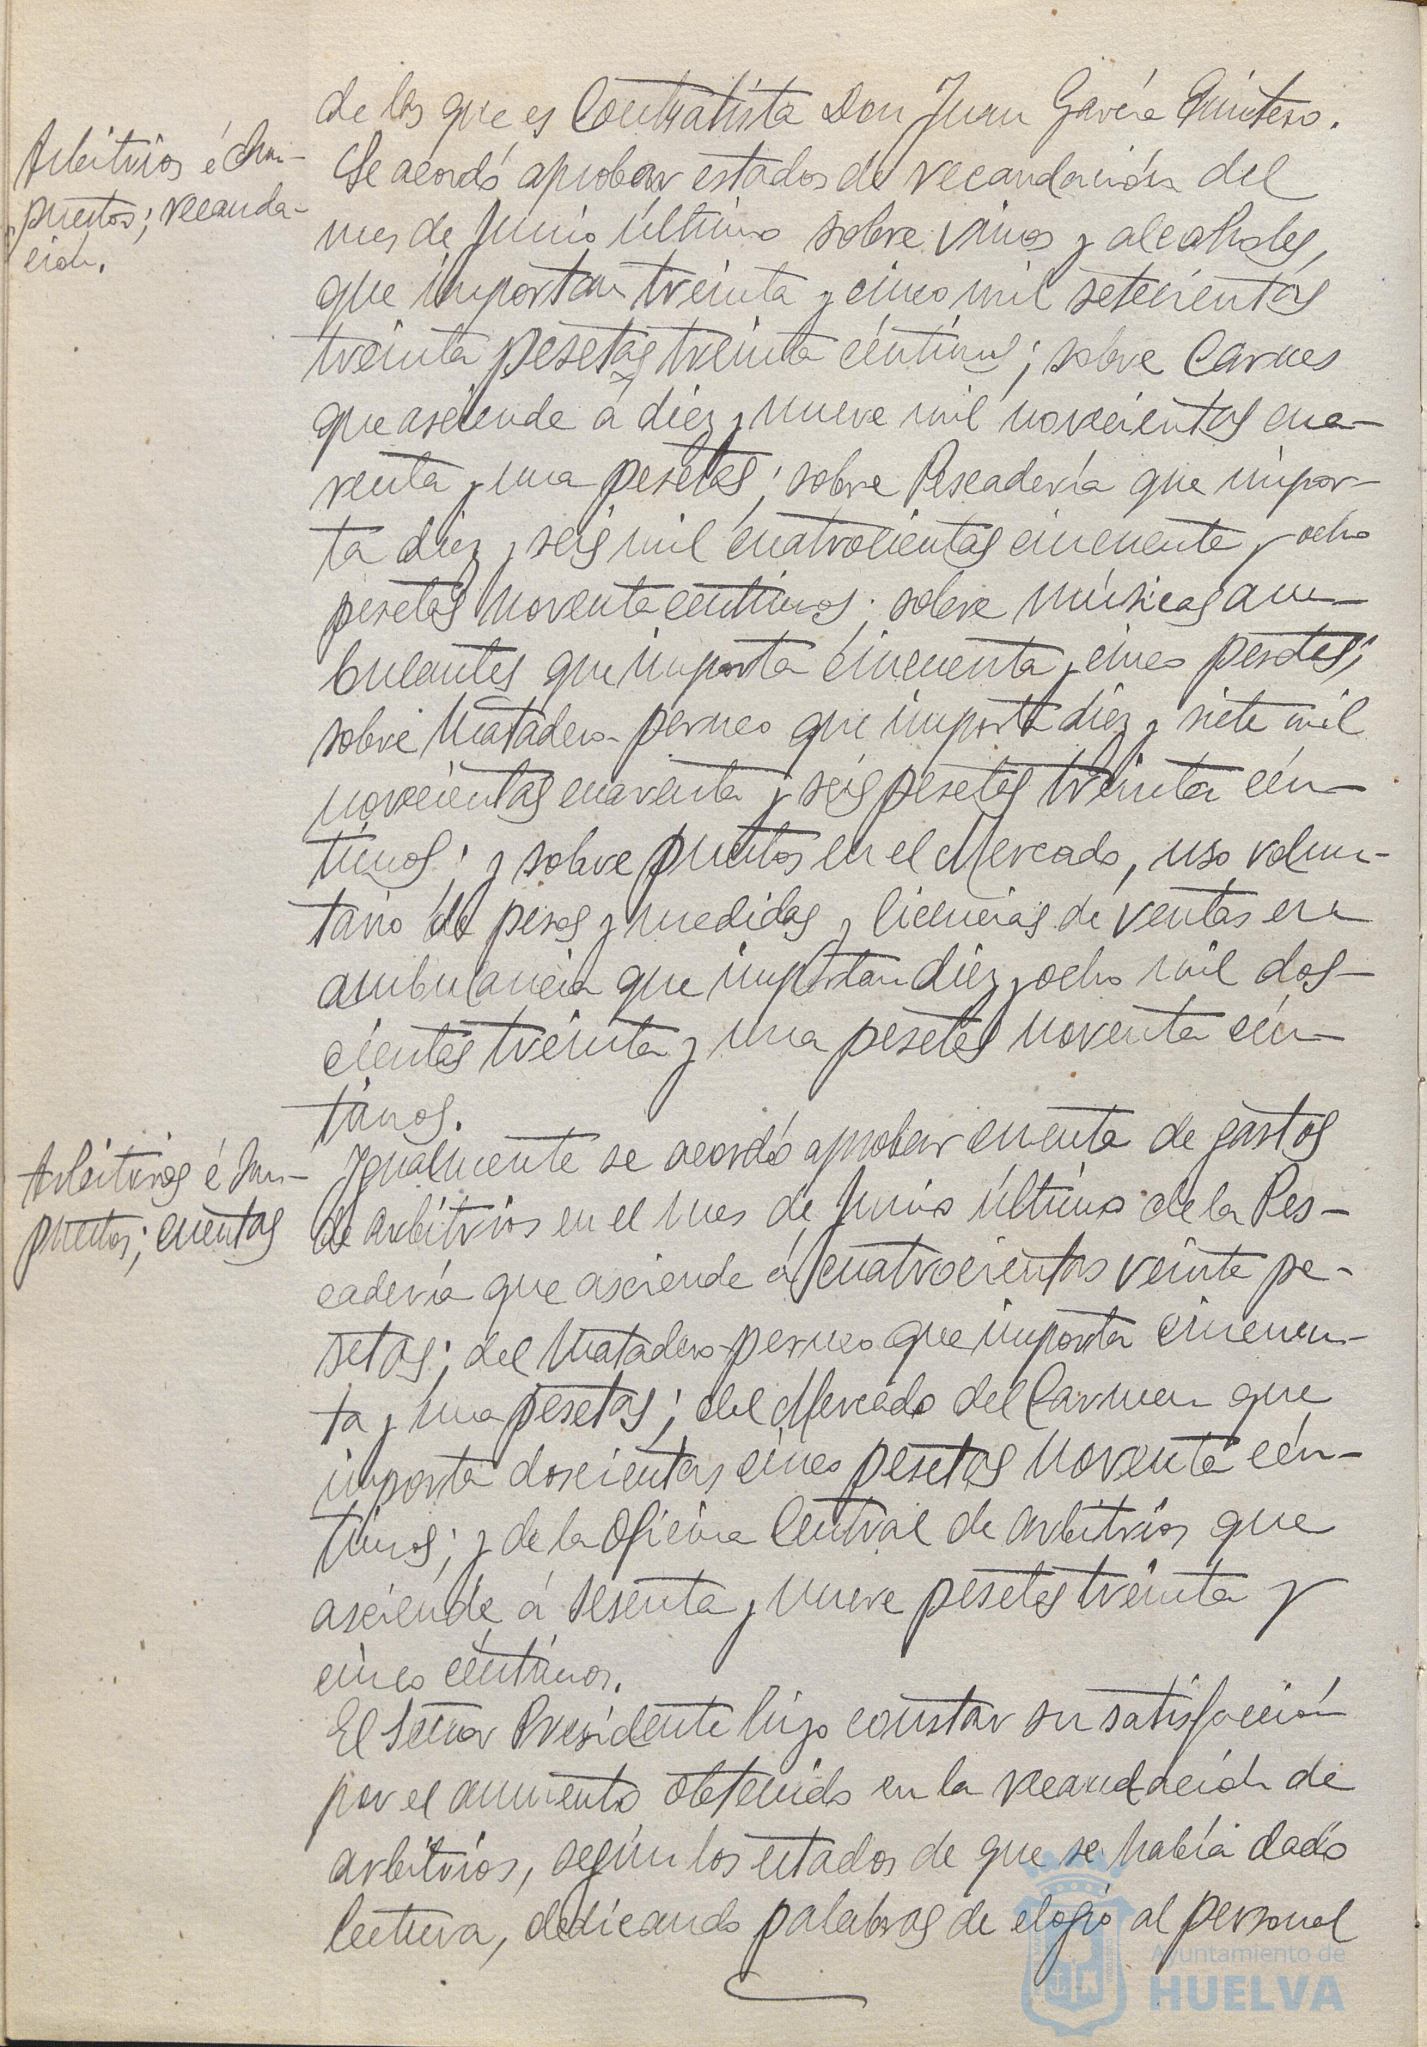 de los que es Contratista Don Juan García Quintero.
Arbitrios é Im-
puestos; recauda-
ción.
Se acordó aprobar estados de recaudación del
mes de Junio último sobre vinos y alcoholes,
que importan treinta y cinco mil setecientas
treinta pesetas treinta céntimos; sobre Carnes
que asciende á diez y nueve mil novecientas cua-
renta y una pesetas; sobre Pescadería que impor-
ta diez y seis mil cuatrocientas cincuenta y ocho
pesetas noventa centimos; sobre músicas am-
bulantes que importa cincuenta y cinco pesetas;
sobre Matadero perneo que importa diez y siete mil
novecientas cuarenta y seis pesetas treinta cén-
timos; y sobre puestos en el Mercado, uso volun-
tario de pesas y medidas y licencias de ventas en
ambulancia que importan diez y ocho mil dos-
cientas treinta y una pesetas noventa cén-
timos.
Arbitrios é Im-
puestos; cuentas
Igualmente se acordó aprobar cuenta de gastos
de arbitrios en el mes de Junio último de la Pes-
cadería que asciende á cuatrocientas veinte pe-
setas; del Matadero perneo que importa cincuen-
ta y una pesetas; del Mercado del Carmen que
importa doscientas cinco pesetas noventa cén-
timos; y de la Oficina Central de Arbitrios que
asciende á sesenta y nueve pesetas treinta y
cinco céntimos.
El Señor Presidente hizo constar su satisfacción
por el aumento obtenido en la recaudación de
arbitrios, según los estados de que se había dado
lectura, dedicando palabras de elogio al personal
Ayuntamiento de
HUELVA